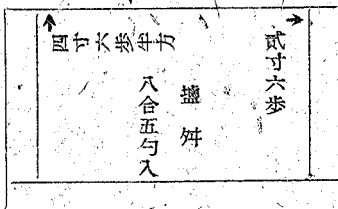 貳寸六歩
塩舛
八合五勺入
四寸六歩半方